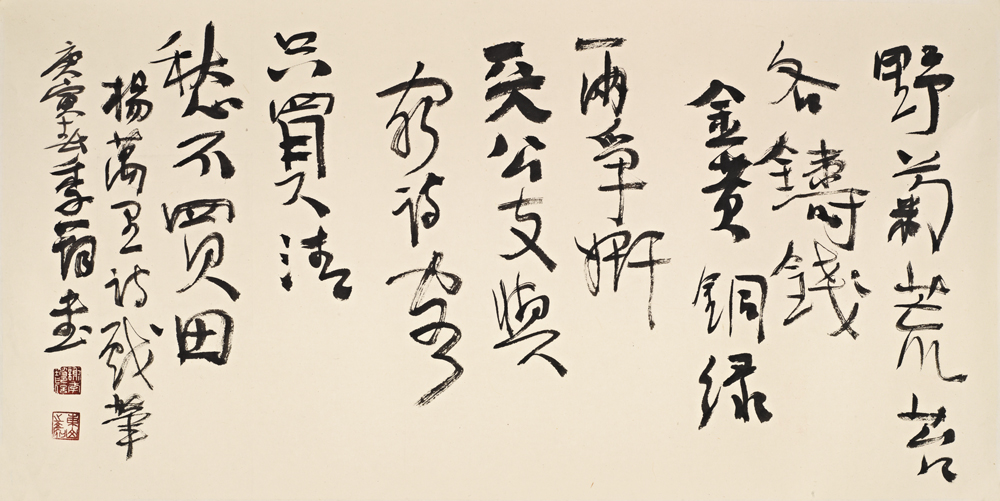 野菊荒苔
各鑄錢
金黄銅绿
兩爭妍
天公支與
窮詩客
只買清
愁不買田
楊萬里詩戲筆
庚寅春